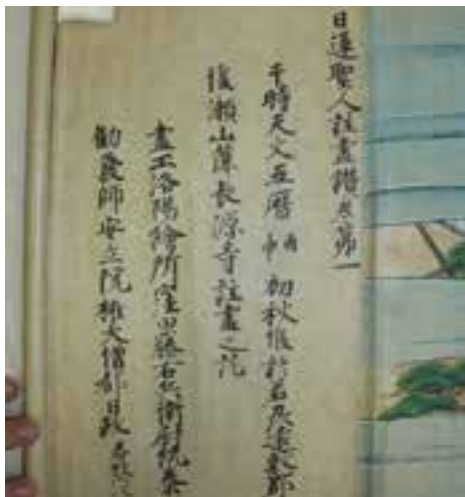 日蓮聖人註畫讃卷第一
于時天文五暦丙申初秋候於若州遠敷郡
後瀬山麓長源寺註畫之訖
畫工洛陽繪所窪田藤右兵衛尉統泰
勧發師安立院権大僧都日政